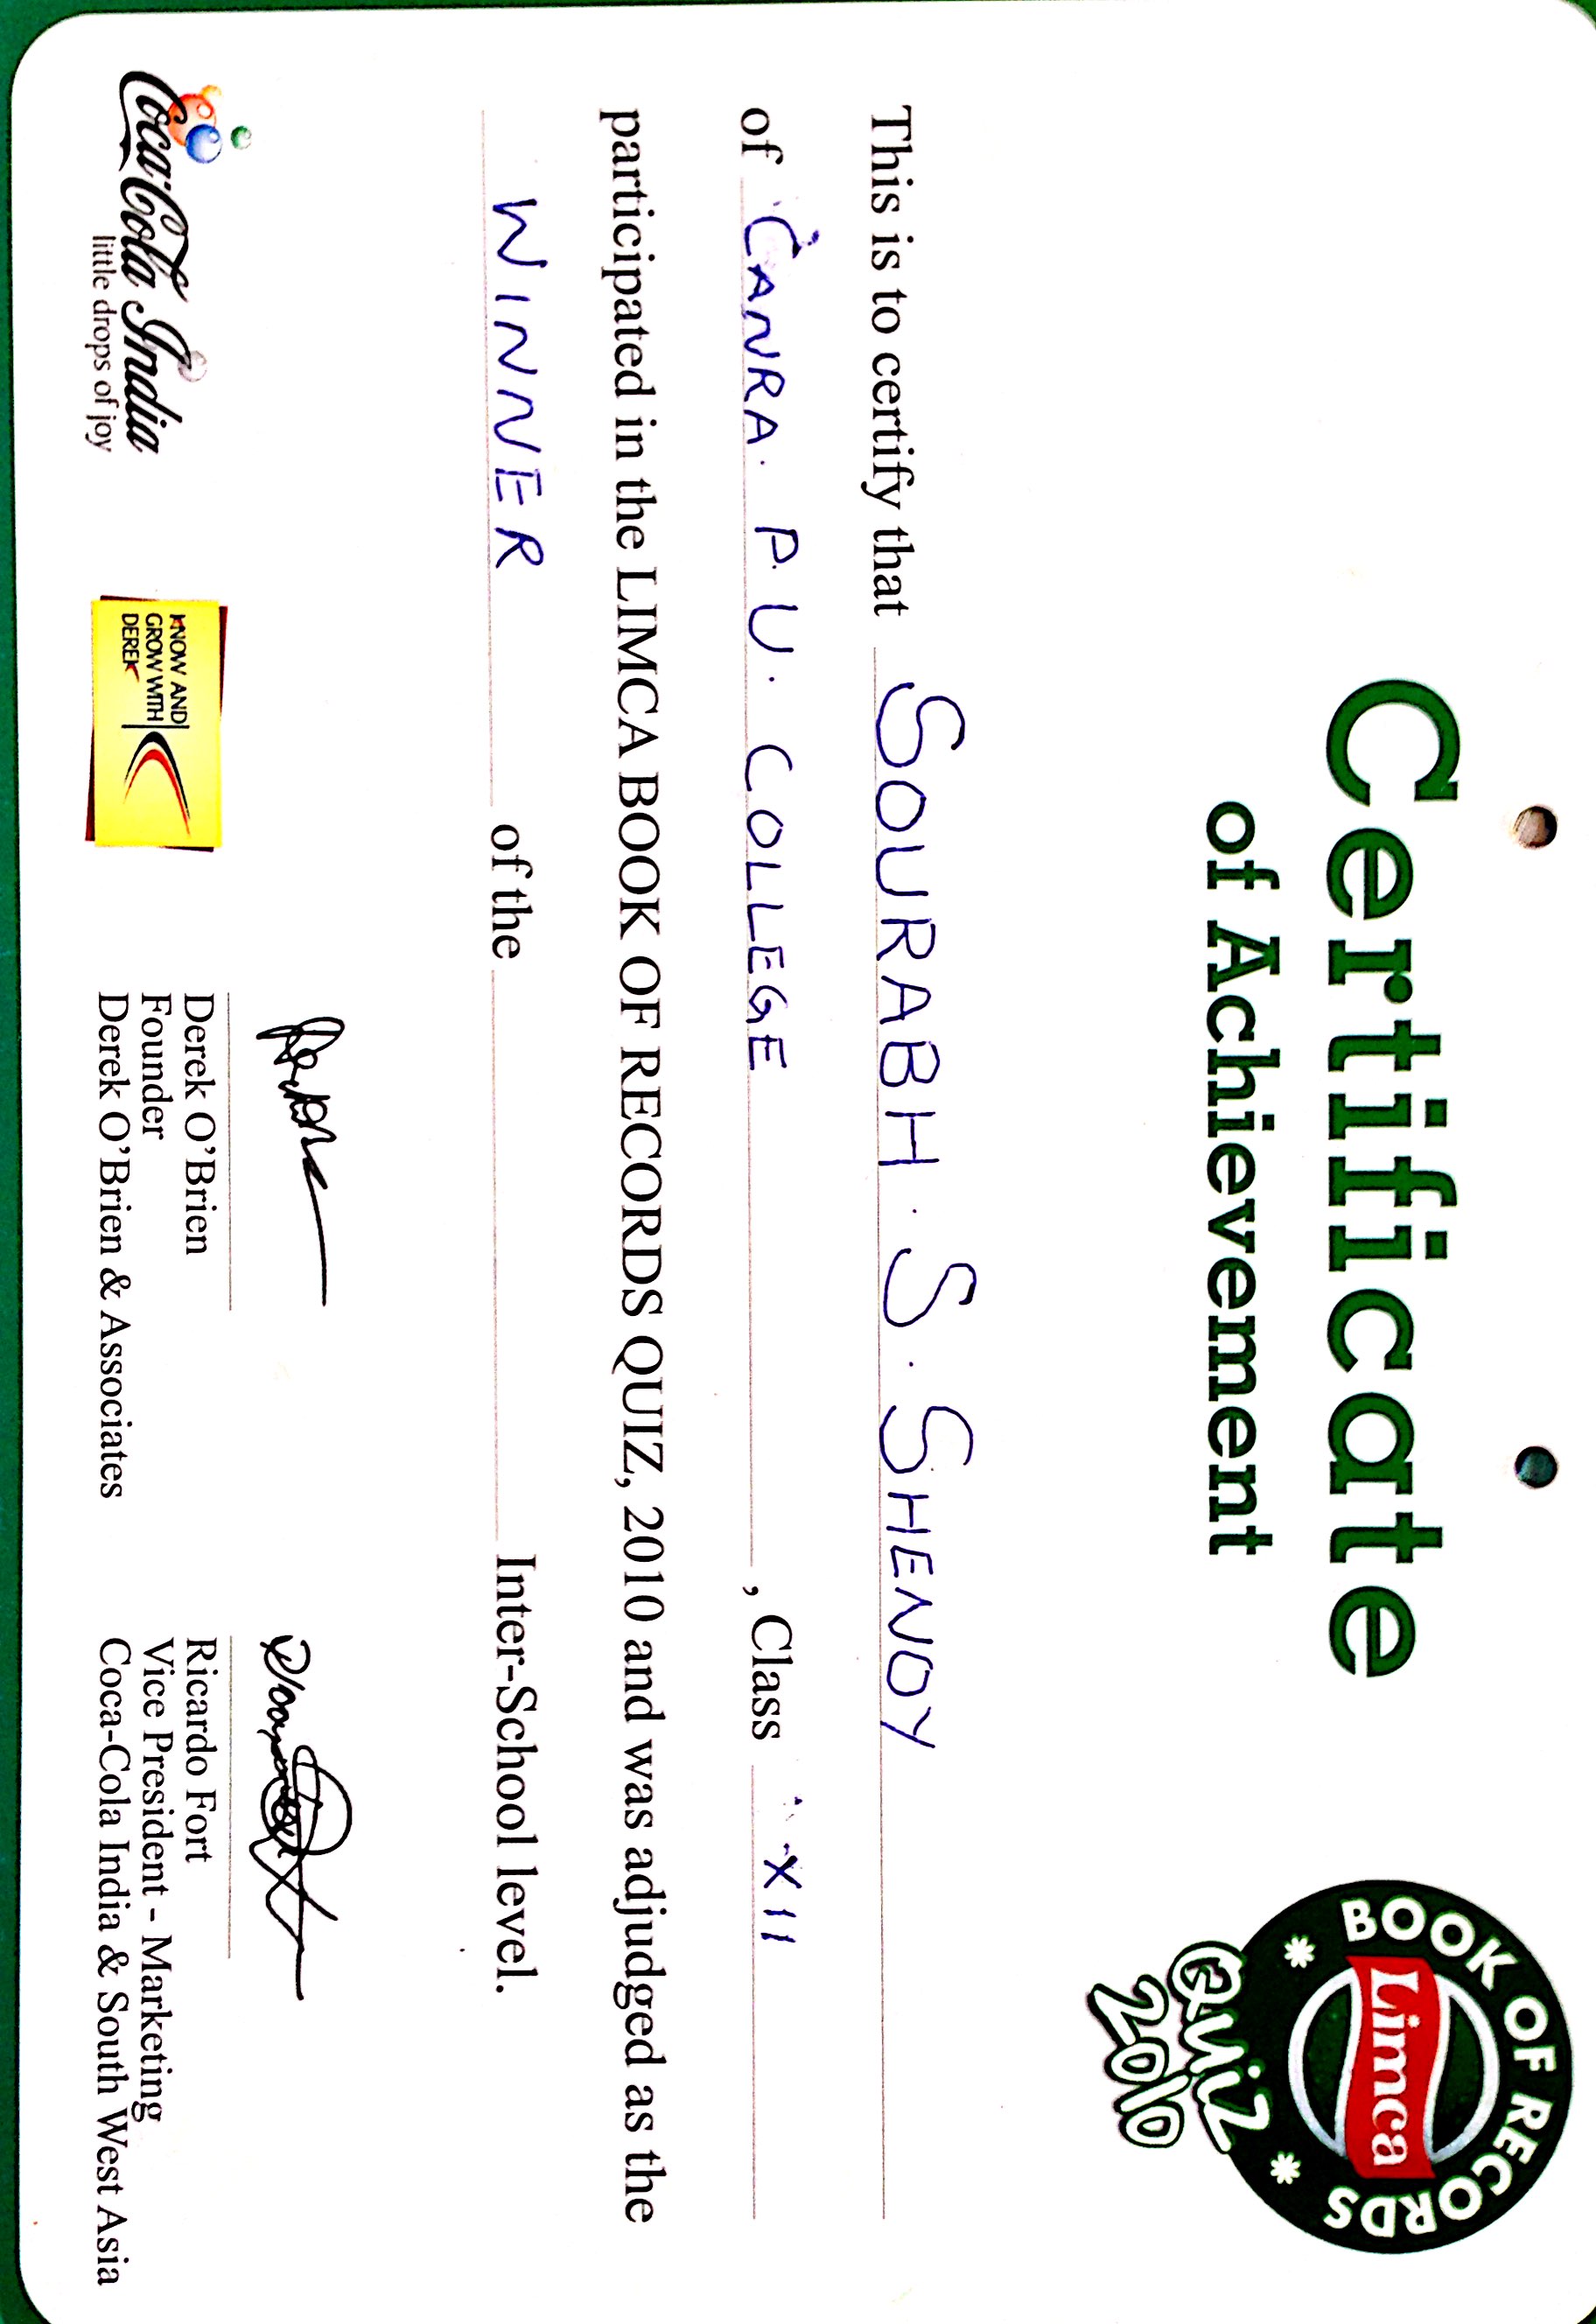 Certificate
of Achievement
BOOK OF RECORDS
Limca
QUIZ
2010
This is to certify that SOURABH . S . SHENOY
of CANRA. P. U. COLLEGE , Class XII
participated in the LIMCA BOOK OF RECORDS QUIZ, 2010 and was adjudged as the
WINNER of the Inter-School level.
Coca-Cola India
little drops of joy
KNOW AND
GROW WITH
DEREK
Derek O'Brien
Founder
Derek O'Brien & Associates
Ricardo Fort
Vice President - Marketing
Coca-Cola India & South West Asia